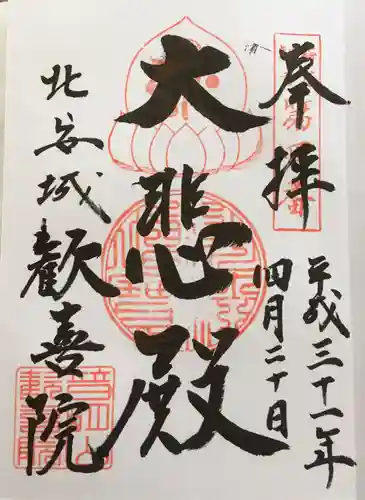 奉拝
平成三十一年
四月二十日
大悲殿
北谷城
歓喜院